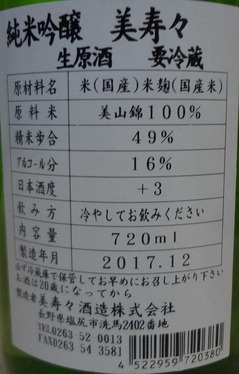 純米吟醸 美寿々
生原酒 要冷蔵
原材料名 米(国産)米麹(国産米)
原料米 美山錦100%
精米歩合 49%
アルコール分 16%
日本酒度 +3
飲み方 冷やしてお飲みください
内容量 720ml
製造年月 2017.12
必ず冷蔵庫で保管してお早めにお召し上がり下さい
お酒は20歳になってから
製造者 美寿々酒造株式会社
長野県塩尻市洗馬2402番地
TEL0263 52 0013
FAX0263 54 3581
4 522959 720380